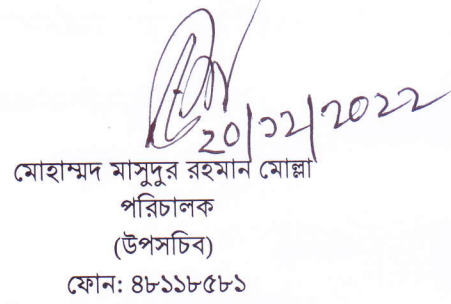 ২০|১২|২০২২
মোহাম্মদ মাসুদুর রহমান মোল্লা
পরিচালক
(উপসচিব)
ফোন: ৪৮১১৮৫৮১